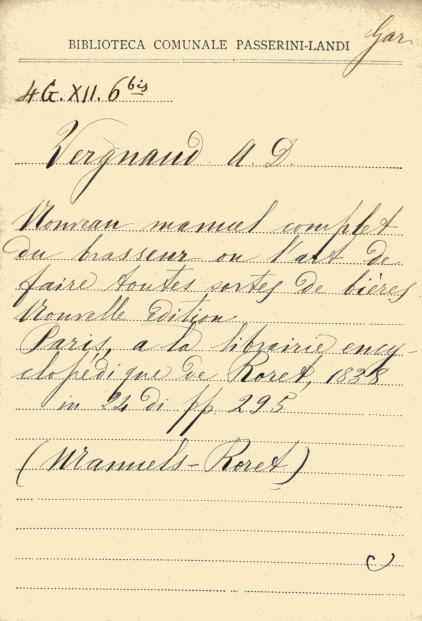 BIBLIOTECA COMUNALE PASSERINI-LANDI
Gar
4G.XII.6 bis
Vergnaud A. D.
Nouveau manuel complet
du brasseur ou l'art de
faire toutes sortes de bières.
Nouvelle Edition
Paris, a la librairie ency-
clopédique de Roret, 1838
in 24 di pp 295
(Manuels-Roret)